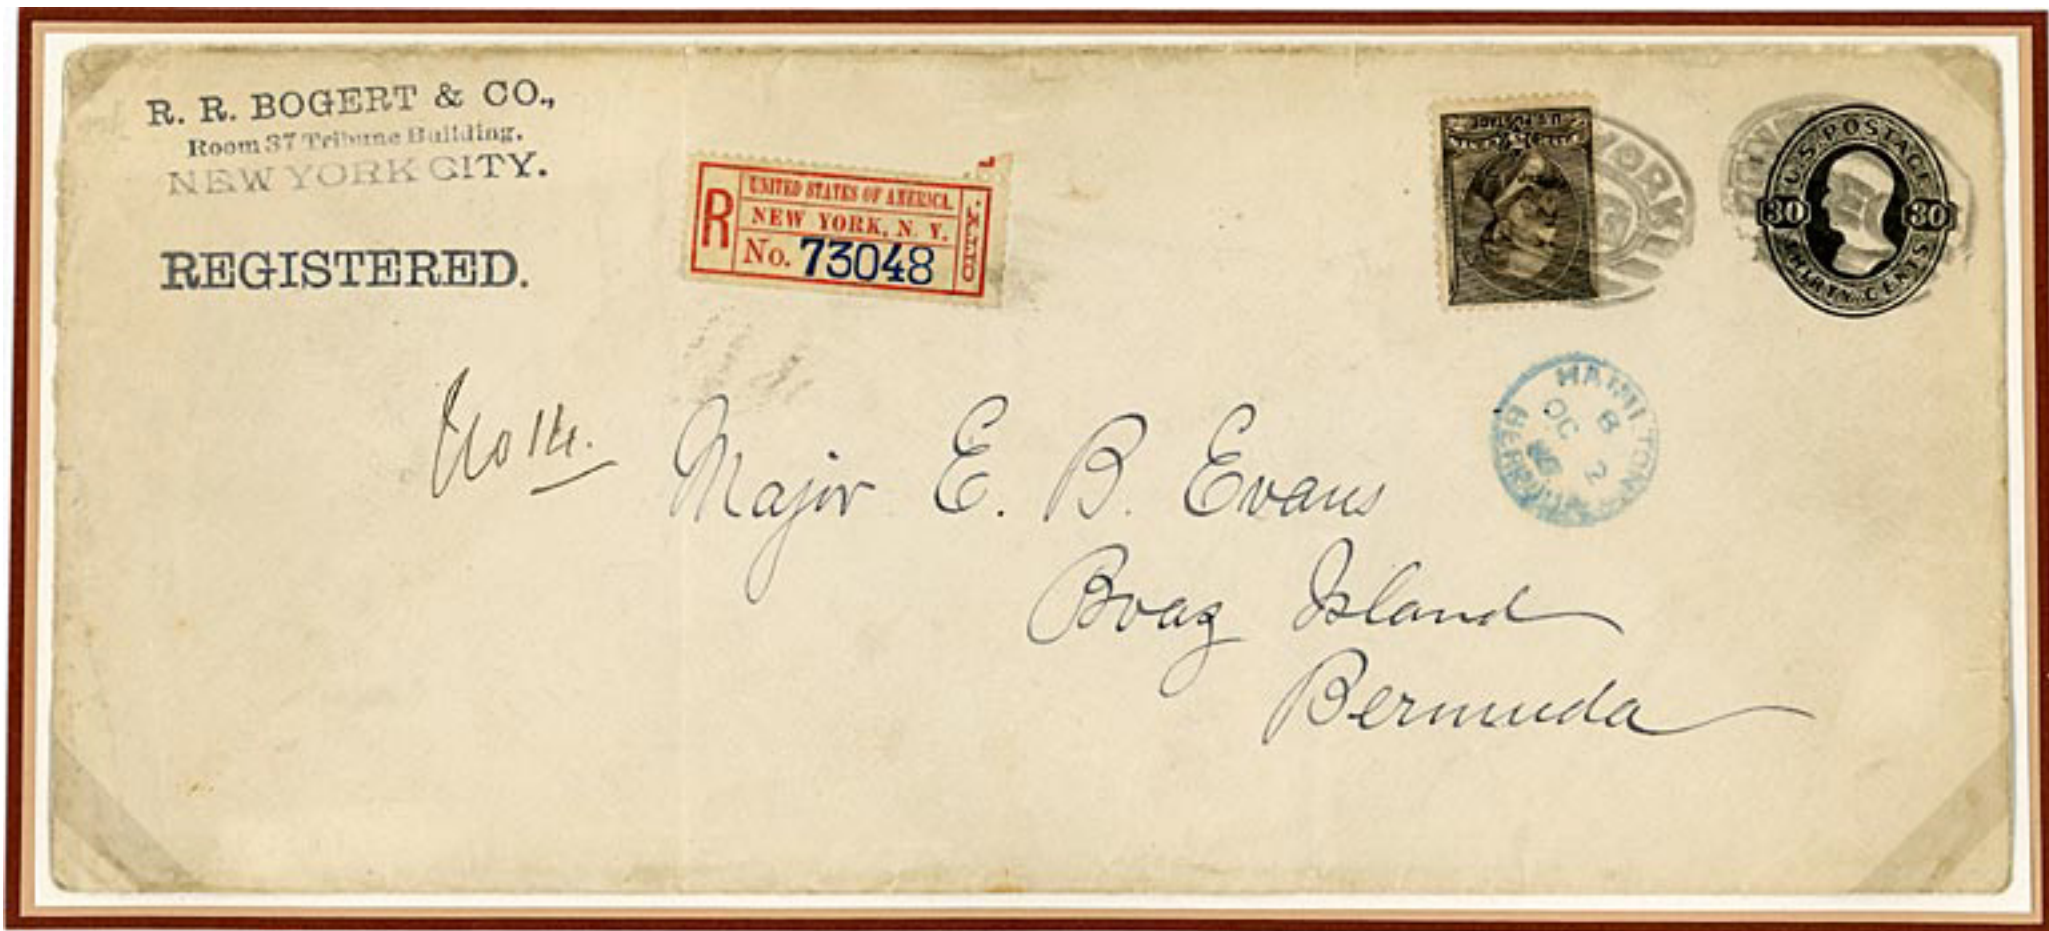 R. R. BOGERT & CO.,
Room 37 Tribune Building.
NEW YORK CITY.
REGISTERED.
R
UNITED STATES OF AMERICA.
NEW YORK, N. Y.
No. 73048
U.S. POSTAGE
YORK
U.S. POSTAGE
30 30
THIRTY CENTS
HAMILTON
BERMUDA
OC 2
Major E. B. Evans
Boaz Island
Bermuda